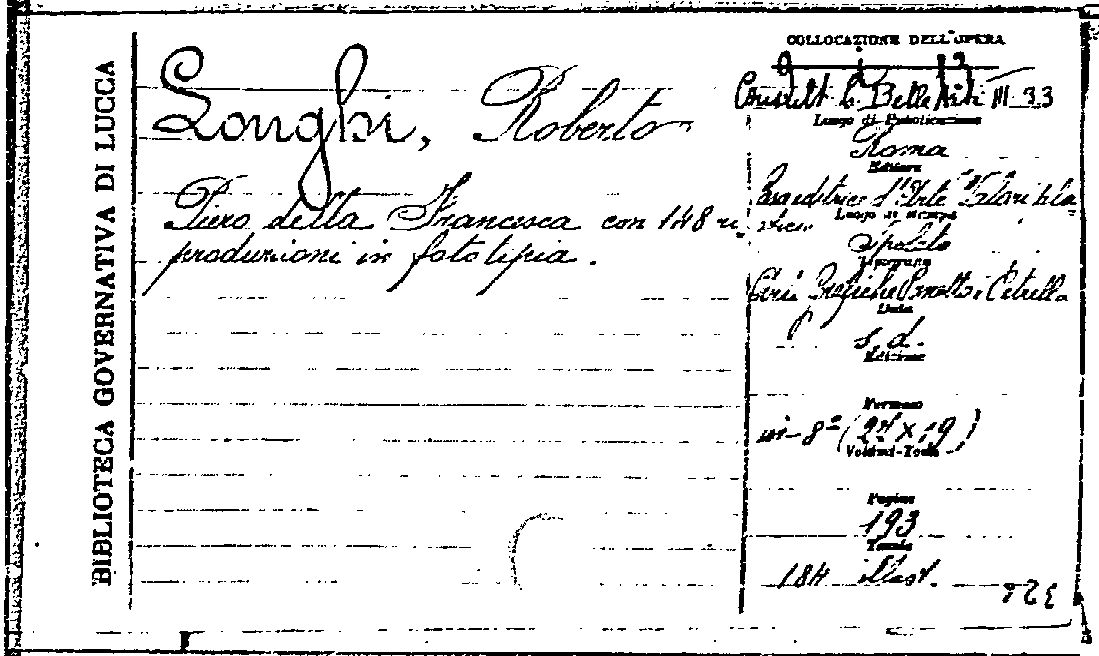 BIBLIOTECA GOVERNATIVA DI LUCCA
Longhi, Roberto
Piero della Francesca con 148 ri-
produzioni in fototipia.
COLLOCAZIONE DELL'OPERA
Consult. b. Belle Arti III 33
Luogo di Pubblicazione
Roma
Editore
Casa editrice d'Arte Valori pla-
stici
Luogo di stampa
Spoleto
Tipografia
Arti Grafiche Panetto e Petrelli
Data
s. d.
Edizione
Formato
in-8º (24 x 19)
Volumi-Tomi
Pagine
193
Tavole
184 illust.